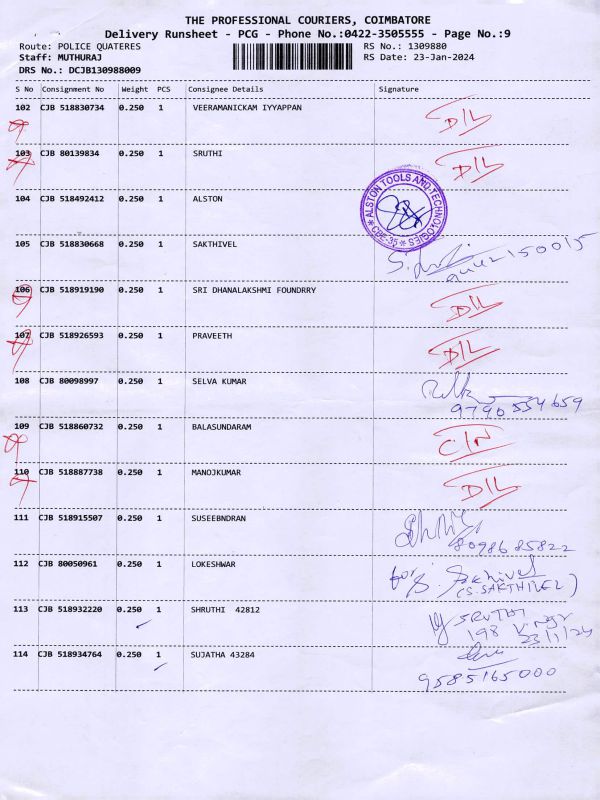 THE PROFESSIONAL COURIERS, COIMBATORE
Delivery Runsheet - PCG - Phone No.:0422-3505555 - Page No.:9
Route: POLICE QUATERES RS No.: 1309880
Staff: MUTHURAJ RS Date: 23-Jan-2024
DRS No.: DCJB130988009
S No Consignment No Weight PCS Consignee Details Signature
102 CJB 518830734 0.250 1 VEERAMANICKAM IYYAPPAN D/L
103 CJB 80139834 0.250 1 SRUTHI D/L
104 CJB 518492412 0.250 1 ALSTON
ALSTON TOOLS AND TECHNOLOGIES
CBE-35
105 CJB 518830668 0.250 1 SAKTHIVEL
106 CJB 518919190 0.250 1 SRI DHANALAKSHMI FOUNDRRY D/L
107 CJB 518926593 0.250 1 PRAVEETH D/L
108 CJB 80098997 0.250 1 SELVA KUMAR
9790554659
109 CJB 518860732 0.250 1 BALASUNDARAM C/N
110 CJB 518887738 0.250 1 MANOJKUMAR D/L
111 CJB 518915507 0.250 1 SUSEEBNDRAN
8098685822
112 CJB 80050961 0.250 1 LOKESHWAR for S. Sakthivel
(S.SAKTHIVEL)
113 CJB 518932220 0.250 1 SHRUTHI 42812 SRUTHI
198
23/1/24
114 CJB 518934764 0.250 1 SUJATHA 43284
9585165000